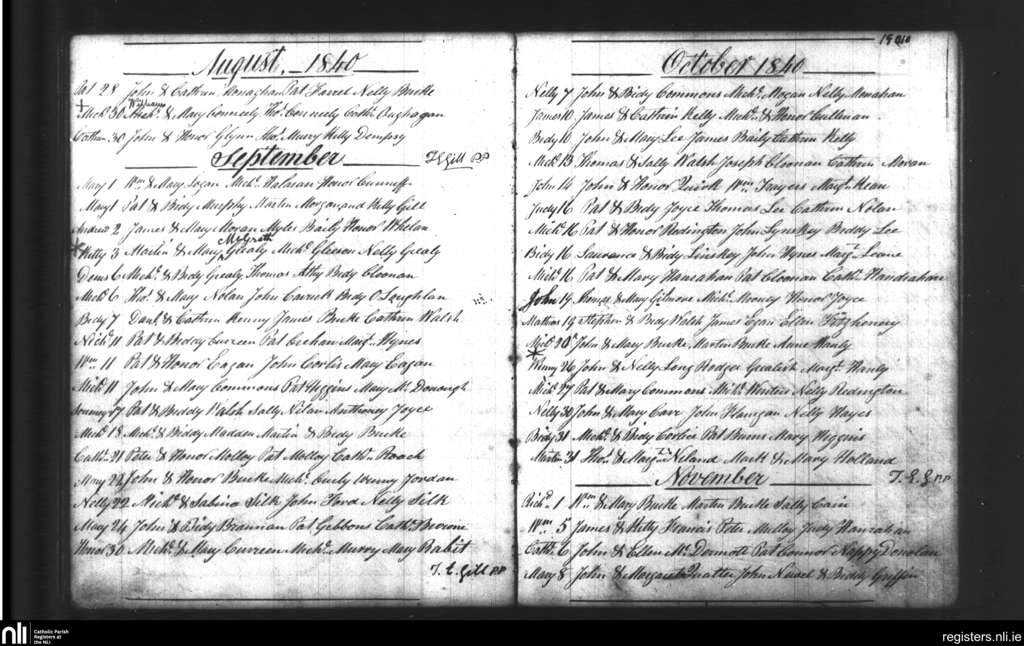 August, 1840
Pat 28 John & Cathrin Monaghan Pat Farrel Nelly Burke
Mich 30 William & Mary Conneely Tho.s Conneely Cath.n
Cathrin 30 John & Honor Glynn Tho.s Murry Kelly Dempsy
September
T E Gill PP
Mary 1 W.m & Mary Logan Mich.l Halvean Honor Cunniff
Mary 1 Pat & Bidy Murphy Martin Morgan and Kelly Gill
Andrew 2 James & Mary Moran Myles Baily Honor Whelan
McGrath
Kitty 3 Martin & Mary Gealy Mich.l Gleeson Nelly Gealy
Denis 6 Mich.l & Bidy Gealy Thomas Atty Bidy Cloonan
Mich.l 6 Tho.s & Mary Nolan John Carrick Bidy O'Loughlan
Bidy 7 Dan.l & Cathrin Kenny James Burke Cathrin Walsh
Mich.l 11 Pat & Biddy Curreen Pat Margt. Hynes
W.m 11 Pat & Honor Eagan John Corlis Mary Eagan
Mich.l 11 John & Mary Commons Pat Higgins Mary Mc Donough
17 Pat & Biddy Walsh Sally Nilan Anthoney Joyce
Mich.l 18 Mich.l & Biddy Madden Martin & Bidy Burke
Cath.n 21 Peter & Honor Molloy Pat Molloy Cath.n Roach
Mary 22 John & Honor Burke Mich.l Curly Winny Jordan
Nelly 22 Mich.l & Sabina Silk John Ford Nelly Silk
Mary 24 John & Bidy Brannan Pat Gibbons Cath.n Browne
Honor 30 Mich.l & Mary Curreen Mich.l Murry Mary Rabit
T. E. Gill PP
October 1840
Nelly 7 John & Bidy Commons Mich.l Mogan Nelly Monahan
James 10 James & Cathrin Kelly Mich.l & Honor Cullinan
Bridy 10 John & Mary Lee James Baily Cathrin Kelly
Mich.l 13 Thomas & Sally Walsh Joseph Cloonan Cathrin Moran
John 14 John & Honor Quirk W.m Margt. Kean
Judy 16 Pat & Bidy Joyce Thomas Lee Cathrin Nolan
Mich.l 16 Pat & Honor Redington John Lynskey Biddy Lee
Bidy 16 Laurance & Bidy Linskey John Hynes Margt. Leane
Mich.l 16 Pat & Mary Hanrahan Pat Cloonan Cath.n Handrahan
John 19 & Mary Gilmore Mich.l Mooney Honor Joyce
Mathias 19 Stephen & Bidy Walsh James Egan Ellen Fitzhenry
Mich.l 20 John & Mary Burke Martin Burke Anne Hanly
Winny 26 John & Nelly Long Rodger Margt. Hanly
Mich.l 27 Pat & Mary Commons Mich.l Winter Nelly Redington
Nelly 30 John & Mary Carr John Flanigan Nelly Hayes
Bridy 31 Mich.l & Bidy Corlis Pat Burns Mary Higgins
Martin 31 Tho.s & Margt. Noland Mark & Mary Holland
November
T. E. G PP
Rich.d 1 W.m & Mary Burke Martin Burke Sally Cain
W.m 5 James & Kitty Francis Peter Molloy Judy Hanrahan
Cath.n 6 John & Ellen Mc Dermott Pat Connor Nappy Donelan
Mary 8 John & Margaret John & Biddy Griffin
nli
Catholic Parish
Registers at
the NLI
registers.nli.ie